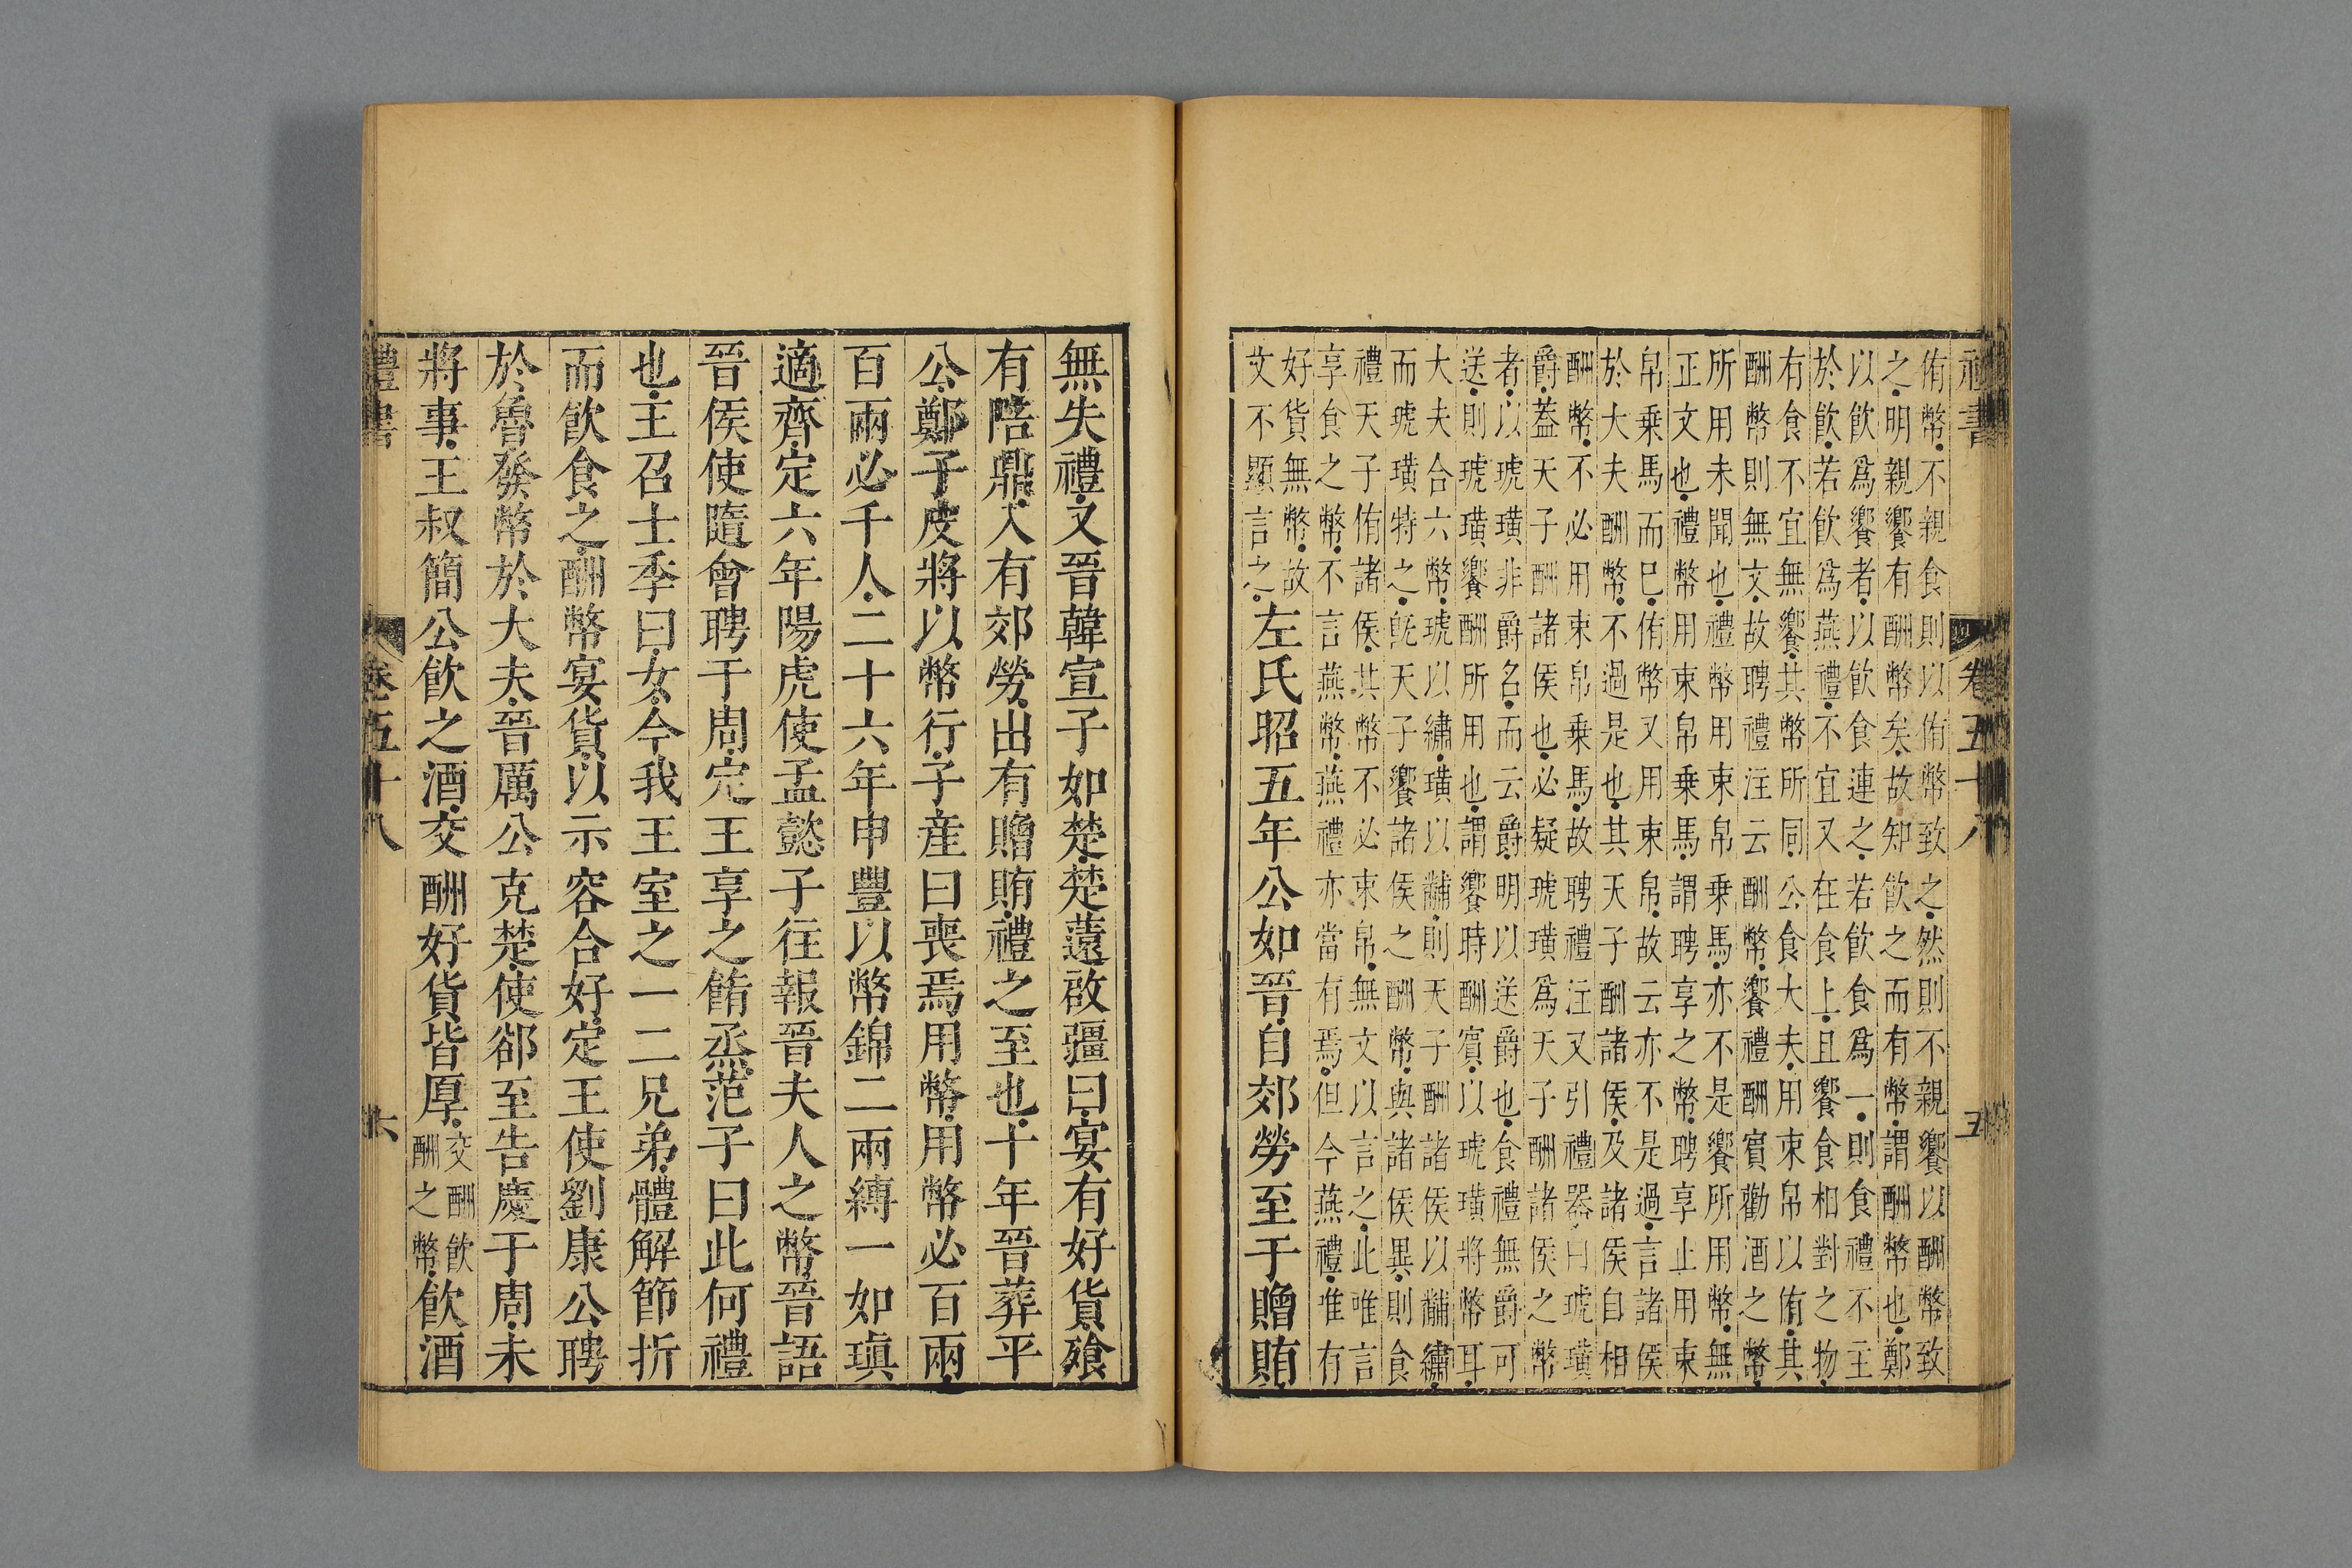 禮書 卷五十八 五
侑幣不親食則以侑幣致之然則不親饗以酬幣致
之明親饗有酬幣矣故知飮之而有幣謂酬幣也鄭
以飮爲饗者以飮食連之若飮食爲一則食禮不主
於飮若飮爲燕禮不宜又在食上且饗食相對之物
有食不宜無饗其幣所同公食大夫用束帛以侑其
酬幣則無文故聘禮注云酬幣饗禮酬賓勸酒之幣
所用未聞也禮幣用束帛乗馬亦不是饗所用幣無
正文也禮幣用束帛乗馬謂聘享之幣聘享止用束
帛乗馬而巳侑幣又用束帛故云亦不是過言諸侯
於大夫酬幣不過是也其天子酬諸侯及諸侯自相
酬幣不必用束帛乗馬故聘禮注又引禮器曰琥璜
爵蓋天子酬諸侯也必疑琥璜爲天子酬諸侯之幣
者以琥璜非爵名而云爵明以送爵也食禮無爵可
送則琥璜饗酬所用也謂饗時酬賓以琥璜將幣耳
大夫合六幣琥以繡璜以黼則天子酬諸侯以黼繡
而琥璜特之旣天子饗諸侯之酬幣與諸侯異則食
禮天子侑諸侯其幣不必束帛無文以言之此唯言
享食之幣不言燕幣燕禮亦當有焉但今燕禮唯有
好貨無幣故
文不顯言之左氏昭五年公如晉自郊勞至于贈賄
無失禮又晉韓宣子如楚楚薳啟疆曰宴有好貨飱
有陪鼎入有郊勞出有贈賄禮之至也十年晉葬平
公鄭子皮將以幣行子産曰喪焉用幣用幣必百兩
百兩必千人二十六年申豐以幣錦二兩縛一如瑱
適齊定六年陽虎使孟懿子往報晉夫人之幣晉語
晉侯使隨會聘于周定王享之餚烝范子曰此何禮
也王召士季曰女今我王室之一二兄弟體解節折
而飮食之酬幣宴貨以示容合好定王使劉康公聘
於魯發幣於大夫晉厲公克楚使郤至告慶于周未
將事王叔簡公飮之酒交酬好貨皆厚交酬飮酬之幣飮酒
禮書 卷五十八 六